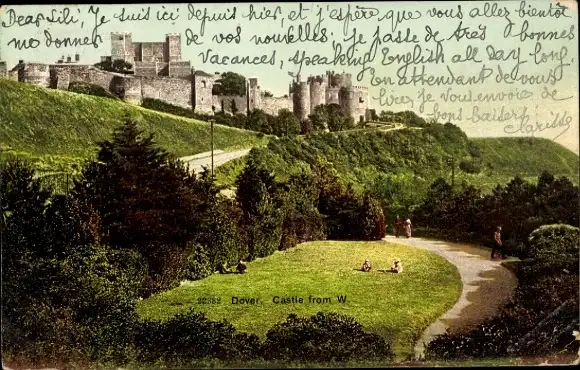 Dear Lili, Je suis ici depuis hier, et j'espère que vous allez bientôt
me donner de vos nouvelles, je passe de très bonnes
Vacances, speaking English all day long.
En attendant de vous
lire, je vous envoie de
bons baisers
Clarisse
22382 Dover. Castle from W.